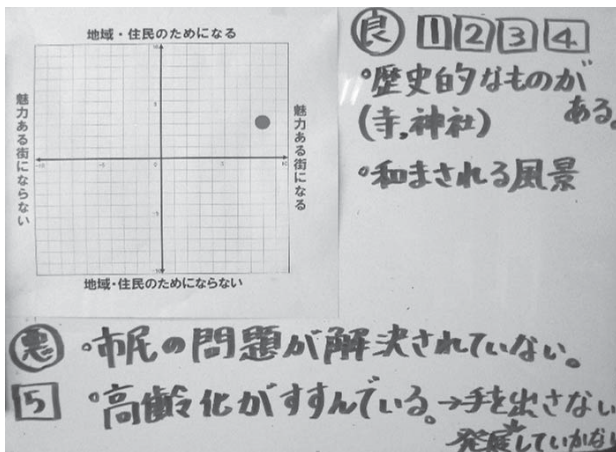 地域・住民のためになる
魅力ある街にならない
魅力ある街になる
地域・住民のためにならない
良 1 2 3 4
・歴史的なものがある。
(寺,神社)
・和まされる風景
悪 ・市民の問題が解決されていない。
5 ・高齢化がすすんでいる。→手を出さない
発展していかない